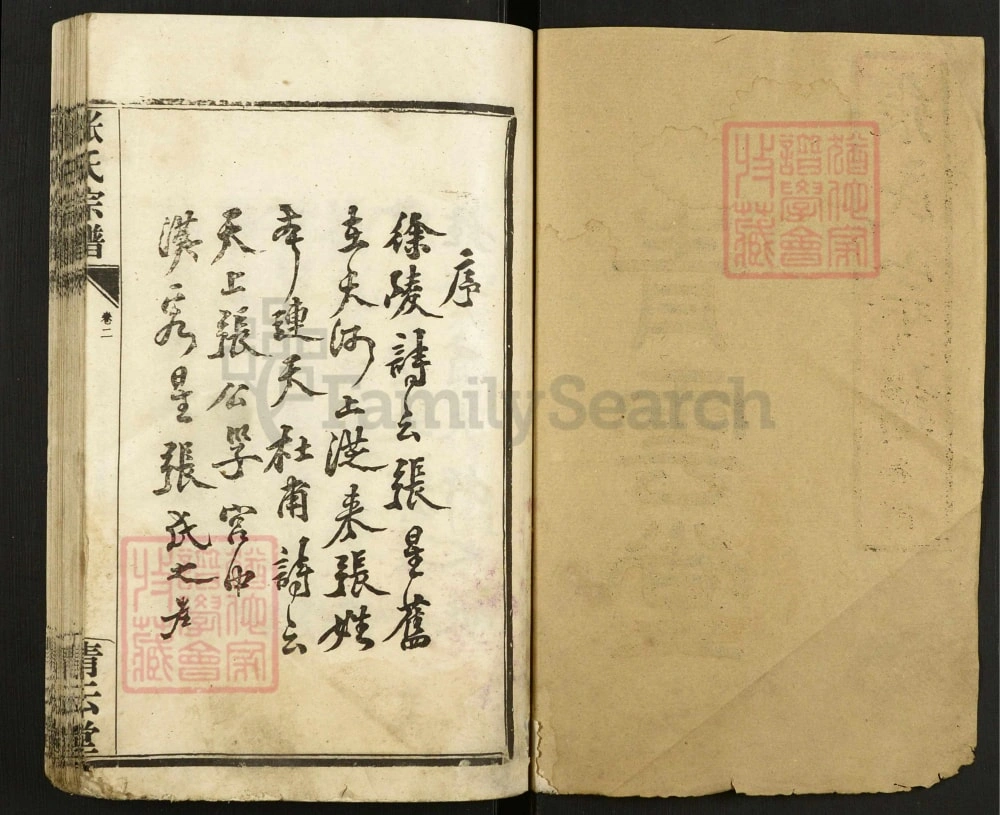 序
徐陵詩云張星舊
在天河上從來張姓
本連天杜甫詩云
天上張公子宮中
漢客星張氏之
張氏宗譜
卷二
清云堂
猶他家
譜學會
特藏
猶他家
譜學會
特藏
FamilySearch